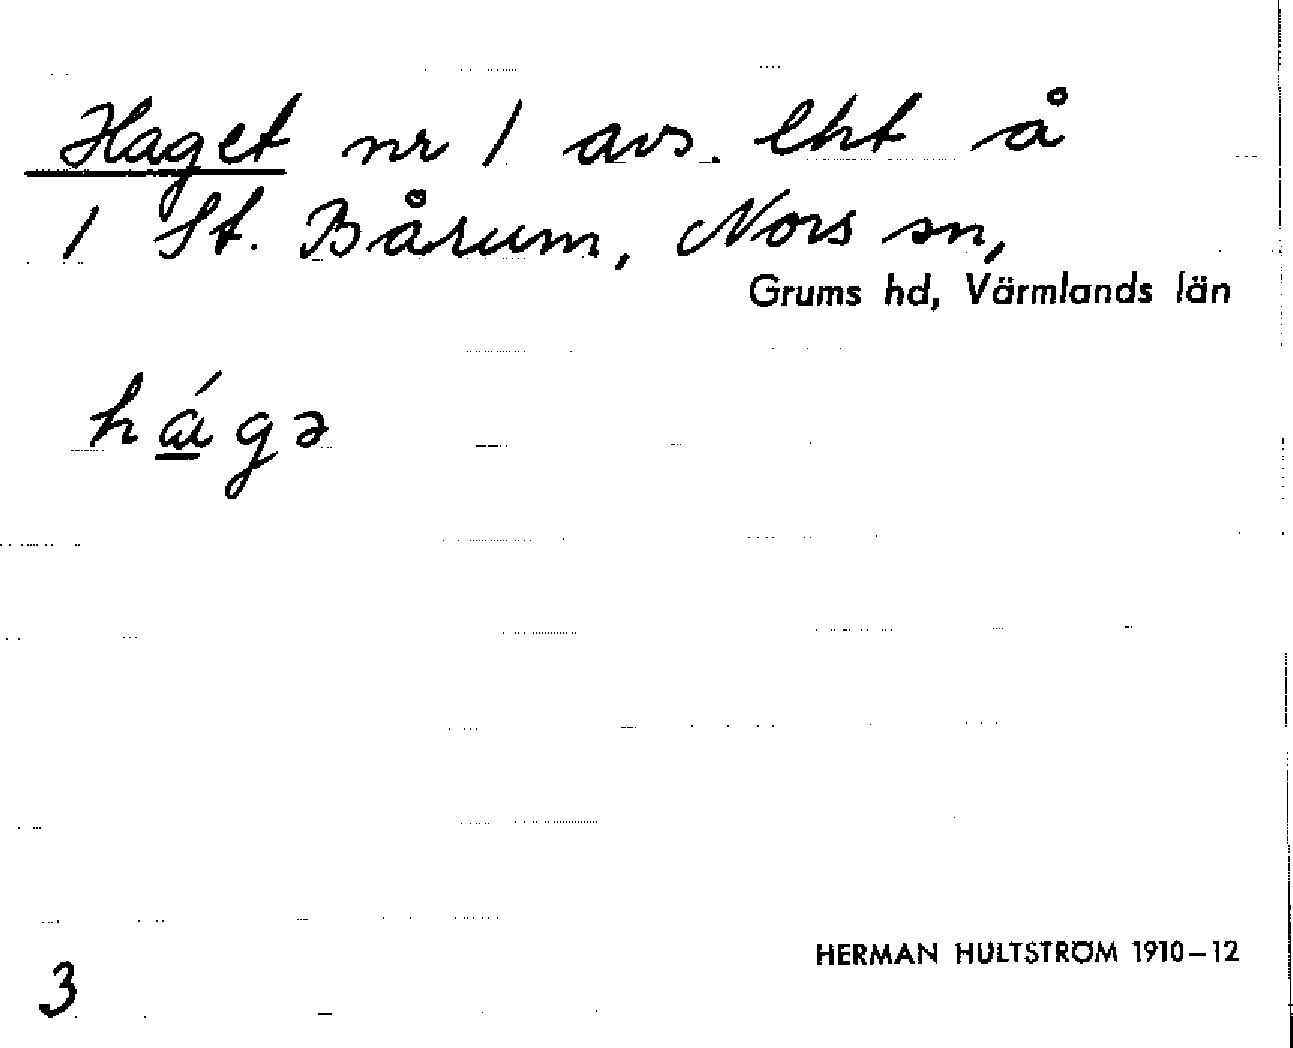 Haget nr 1 avs. lht å
1 St. Bårum, Nors sn,
Grums hd, Värmlands län
há̱gə
HERMAN HULTSTRÖM 1910–12
3